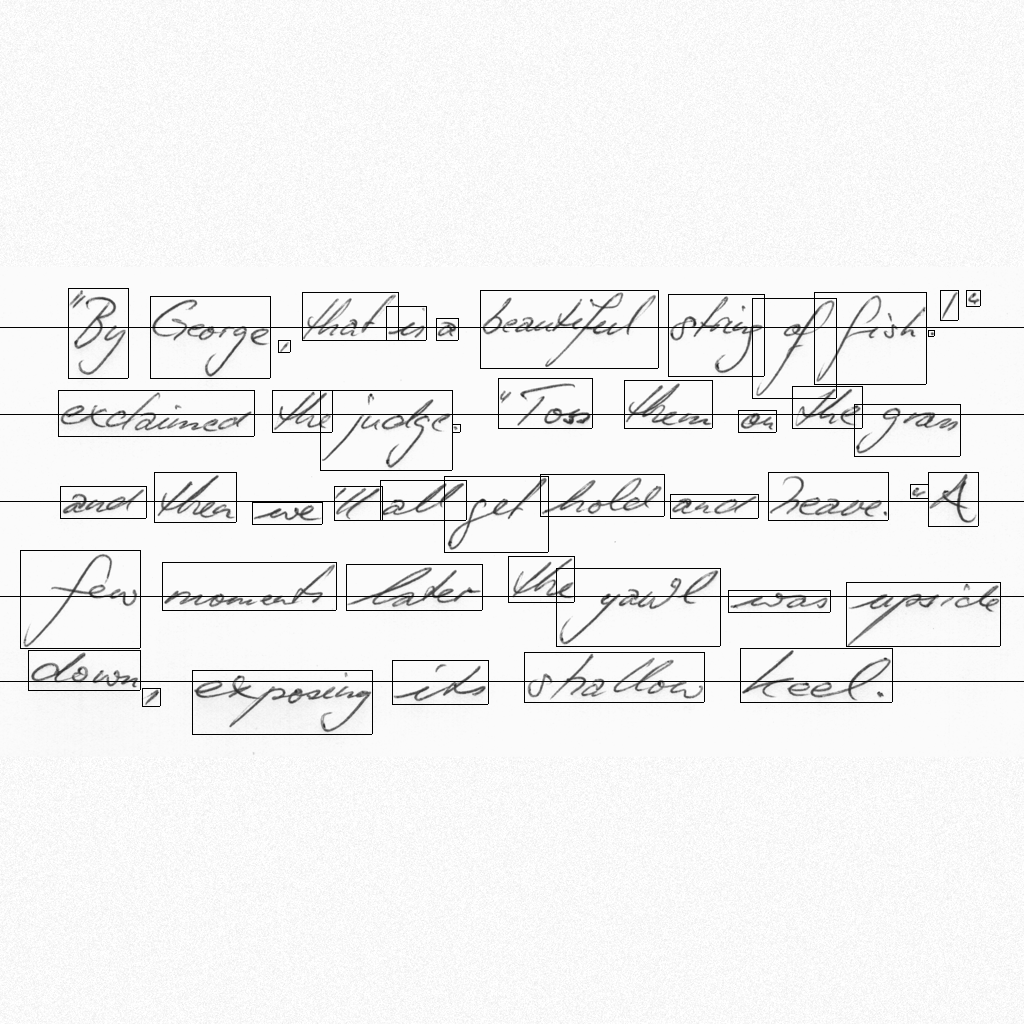 "By George, that is a beautiful string of fish.!"
exclaimed the judge. "Toss them on the grass
and then we'll all get hold and heave." A
few moments later the yawl was upside
down, exposing its shallow keel.